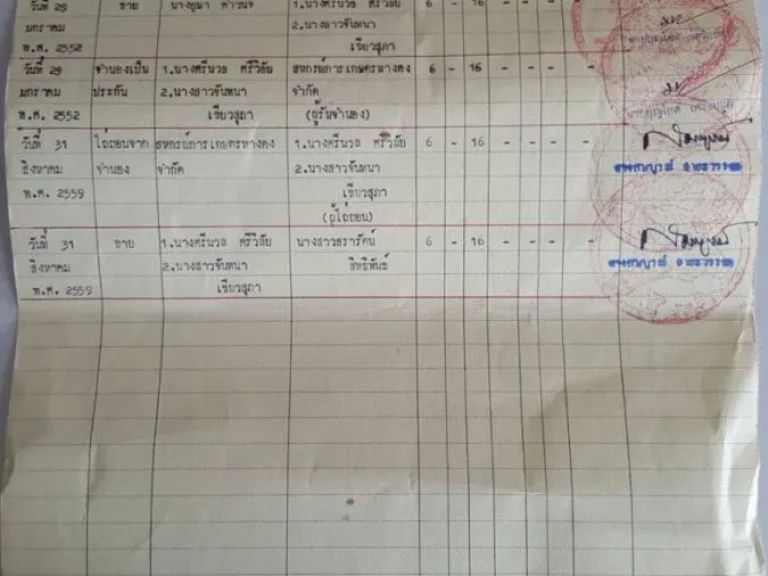 วันที่ 29 ขาย 1.นางศรีนวล ศรีวิลัย 6 - 16 - - - -
มกราคม 2.นางสาวจันทนา
พ.ศ. 2552 เขียวสุภา
วันที่ 29 จำนองเป็น 1.นางศรีนวล ศรีวิลัย สหกรณ์การเกษตรหางดง 6 - 16 - - - -
มกราคม ประกัน 2.นางสาวจันทนา จำกัด
พ.ศ. 2552 เขียวสุภา (ผู้รับจำนอง)
วันที่ 31 ไถ่ถอนจาก สหกรณ์การเกษตรหางดง 1.นางศรีนวล ศรีวิลัย 6 - 16 - - - -
สิงหาคม จำนอง จำกัด 2.นางสาวจันทนา
พ.ศ. 2559 เขียวสุภา
(ผู้ไถ่ถอน)
วันที่ 31 ขาย 1.นางศรีนวล ศรีวิลัย นางสาวธรารัตน์ 6 - 16 - - - -
สิงหาคม 2.นางสาวจันทนา สิทธิพันธ์
พ.ศ. 2559 เขียวสุภา